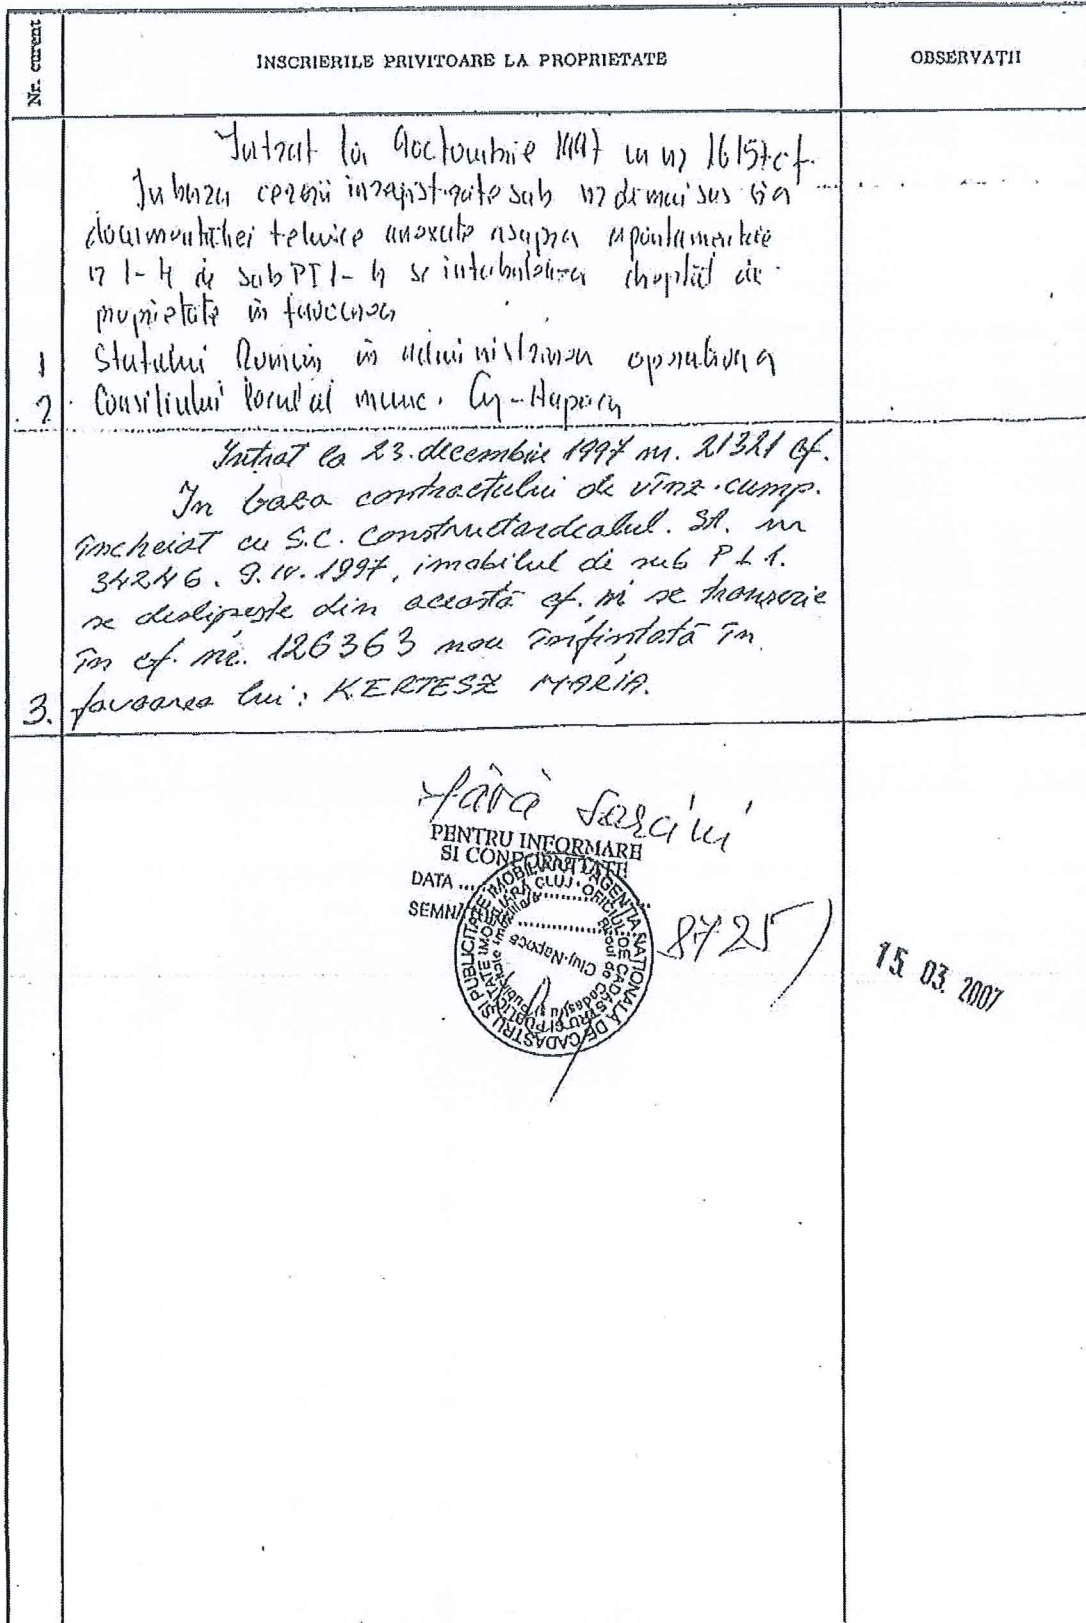 Nr. curent
INSCRIERILE PRIVITOARE LA PROPRIETATE
OBSERVAȚII
Intrat la 9 octombrie 1997 cu nr 16157 cf.
In baza cererii inregistrate sub nr de mai sus si a
documentatiei tehnice anexate asupra apartamentele
nr 1-4 de sub PT 1-4 se intabuleaza dreptul de
proprietate in favoarea
1 Statului Roman in administrarea operativa a
2. Consiliului local al munc. Cj-Napoca
Intrat la 23. decembrie 1997 nr. 21321 cf.
In baza contractului de vînz. cump.
încheiat cu S.C. Constructardealul. SA. nr
34246. 9.IV.1997, imobilul de sub P L 1.
se deslipește din această cf. și se transcrie
în cf. nr. 126363 nou înfintată în
3. favoarea lui: KERTESZ MARIA.
fără sarcini
PENTRU INFORMARE
SI CONFORMITATE
DATA
AGENȚIA NAȚIONALĂ DE CADASTRU ȘI PUBLICITATE IMOBILIARĂ
OFICIUL DE CADASTRU ȘI PUBLICITATE IMOBILIARĂ CLUJ
Biroul de Cadastru și Publicitate Imobiliară
Cluj-Napoca
8725
15. 03. 2007